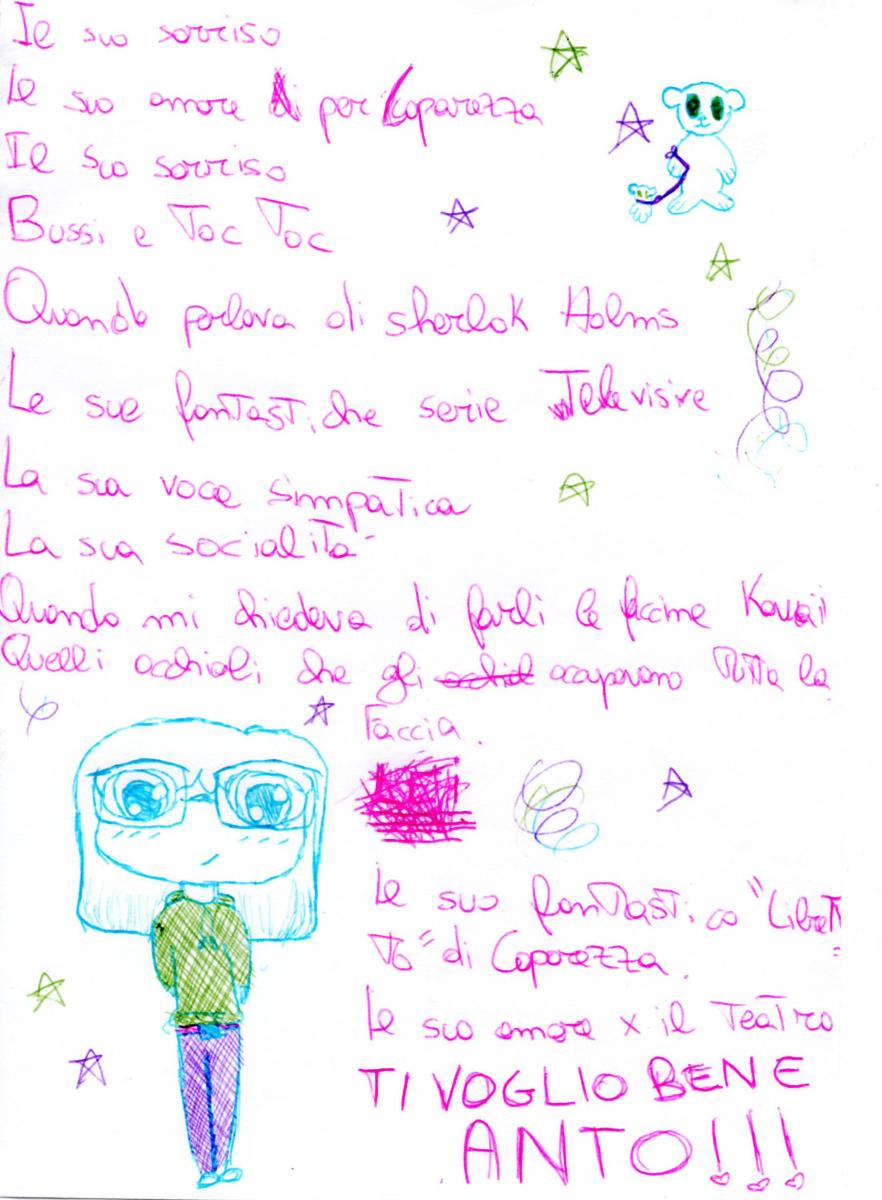 Il suo sorriso
Il suo amore per Caparezza
Il suo sorriso
Bussi e Toc Toc
Quando parlava di sherlok Holms
Le sue fantastiche serie Televisive
La sua voce simpatica
La sua socialità
Quando mi chiedeva di farli le faccine Kawaii
Quelli occhiali che gli occupavano Tutta la
faccia.
Il suo fantastico "Libret
To" di Caparezza.
Il suo amore x il Teatro
TI VOGLIO BENE
ANTO!!!